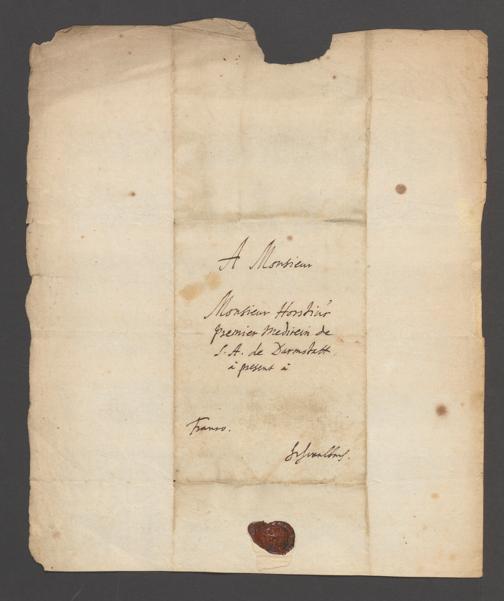 A Monsieur
Monsieur Horstius
premier Medicin de
S. A. de Darmstatt
à present à
Franco.